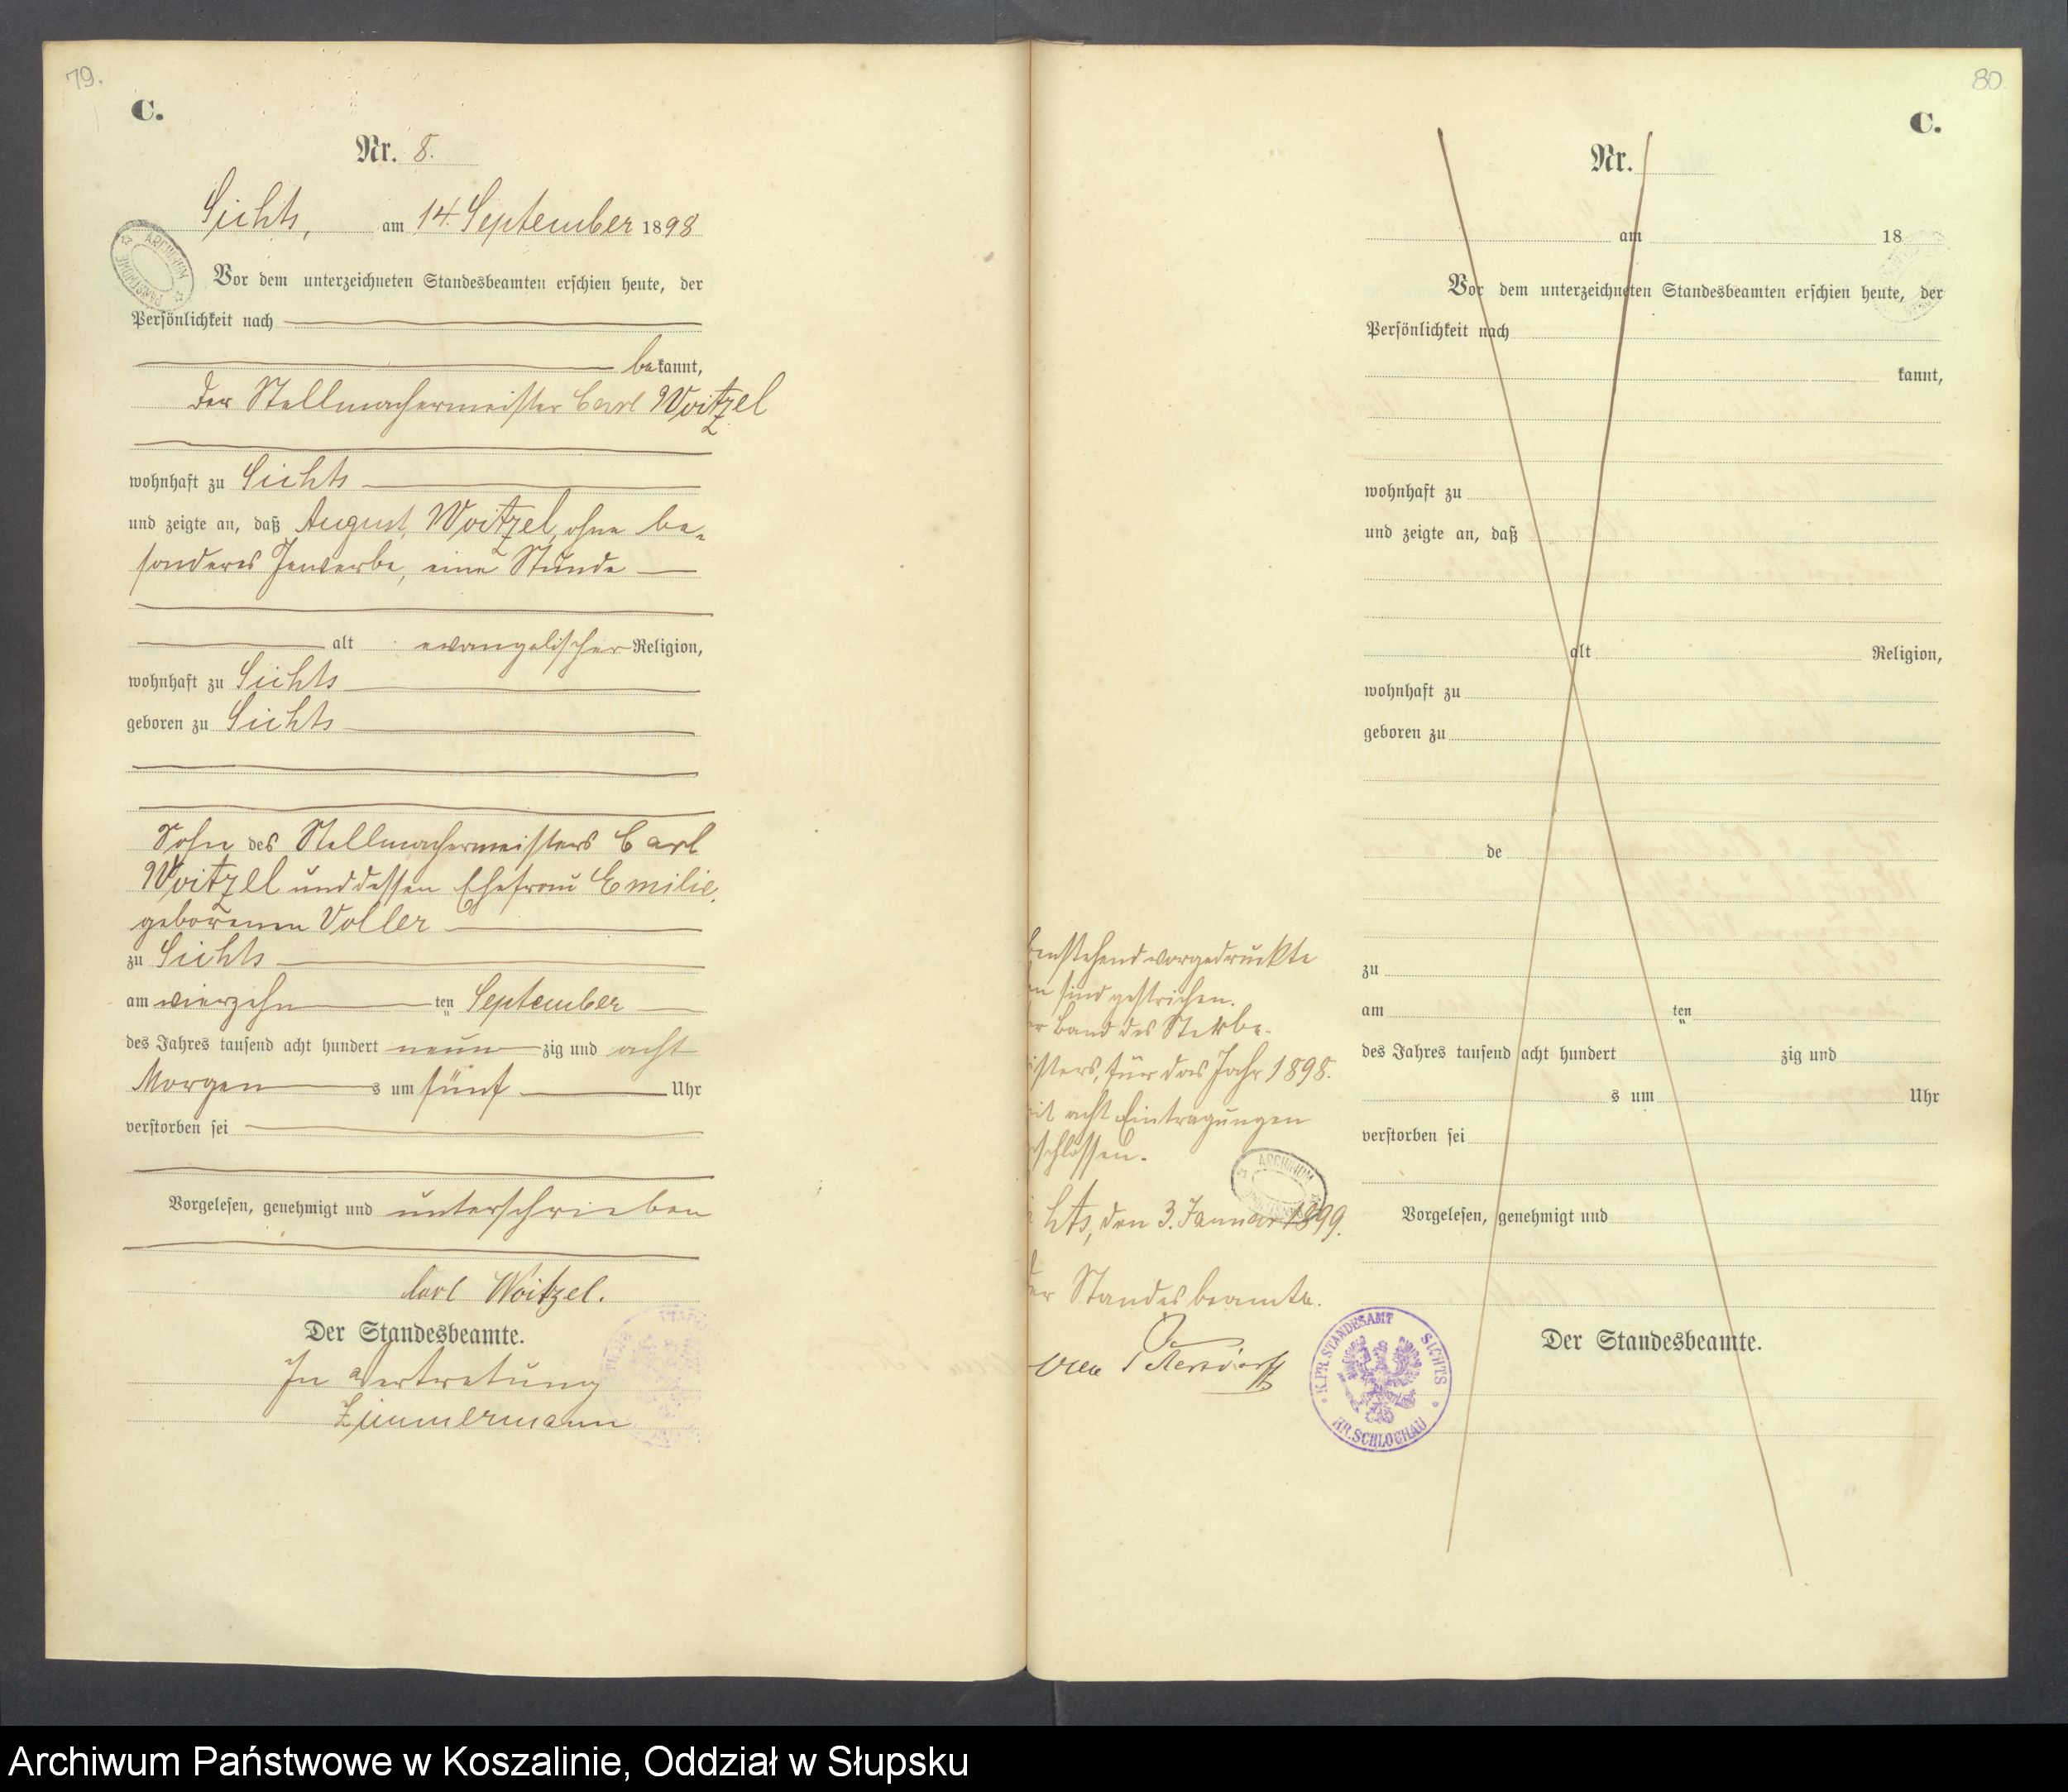 79.
C.
Nr. 8.
Sichts, am 14. September 1898
Vor dem unterzeichneten Standesbeamten erschien heute, der
Persönlichkeit nach
bekannt,
der Stellmachermeister Carl Woitzel
wohnhaft zu Sichts
und zeigte an, daß August Woitzel, ohne be-
sonderes Gewerbe, eine Stunde
alt evangelischer Religion,
wohnhaft zu Sichts
geboren zu Sichts
Sohn des Stellmachermeisters Carl
Woitzel und dessen Ehefrau Emilie,
geborenen Voller
zu Sichts
am vierzehn ten September
des Jahres tausend acht hundert neun zig und acht
Morgen s um fünf Uhr
verstorben sei
Vorgelesen, genehmigt und unterschrieben
Carl Woitzel.
Der Standesbeamte.
In Vertretung
Zimmermann
ARCHIWUM PAŃSTWOWE
80.
C.
Nr.
am 18
Vor dem unterzeichneten Standesbeamten erschien heute, der
Persönlichkeit nach
kannt,
wohnhaft zu
und zeigte an, daß
alt Religion,
wohnhaft zu
geboren zu
de
zu
am ten
des Jahres tausend acht hundert zig und
s um Uhr
verstorben sei
Vorgelesen, genehmigt und
Der Standesbeamte.
enstehend vorgedruckte
en sind gestrichen.
er Band des Sterbe-
isters, für das Jahr 1898.
it acht Eintragungen
schlossen.
hts, den 3. Januar 1899.
er Standesbeamte.
von
ARCHIWUM
K. PR. STANDESAMT SICHTS
KR. SCHLOCHAU
Archiwum Państwowe w Koszalinie, Oddział w Słupsku